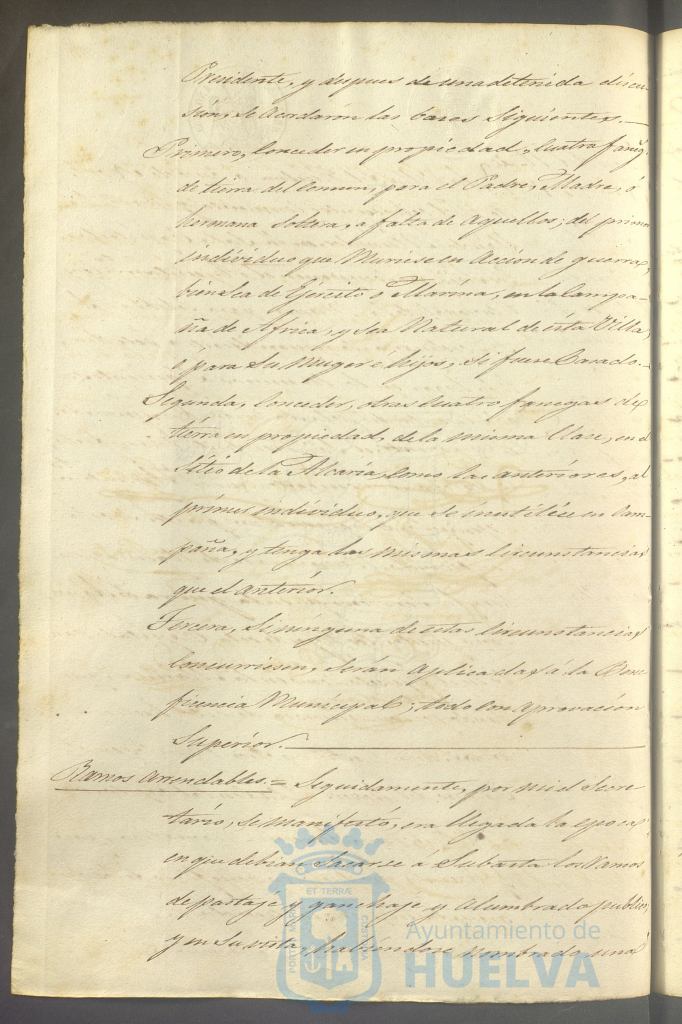 Presidente, y despues de una detenida discu
sion, se acordaron las bases siguientes.—
Primero, Conceder en propiedad, Cuatro fanegs
de tierra del Comun, para el Padre, Madre, ó
hermana Soltera, a falta de aquellos; del primer
individuo que Muriese en Acción de guerra,
bien sea de Ejercito ó Marina, en la Campa-
ña de Africa, y sea Natural de esta Villa,
ó para su Muger é hijos, si fuere Casado.—
Segunda, Conceder, otras cuatro fanegas de
tierra en propiedad, de la misma Clase, en el
Sitio de la Alcaria, Como las anteriores, al
primer individuo, que se inutilice en Cam-
paña, y tenga las mismas Circunstancias
que el anterior.
Tercera, Si ninguna de estas Circunstancias
Concurriesen, Serán aplicadas á la Bene
ficencia Municipal; todo con aprovacion
Superior.
Ramos arrendables.= Seguidamente, por mi el Secre
tario, se manifestó, era llegada la epoca,
en que debian Sacarse á Subasta los Ramos
de pastaje y ganchaje y Alumbrado publico,
y en su vista, habiendose nombrado una
PORTUS MARIS
ET TERRÆ
CUSTODIA
Ayuntamiento de
HUELVA